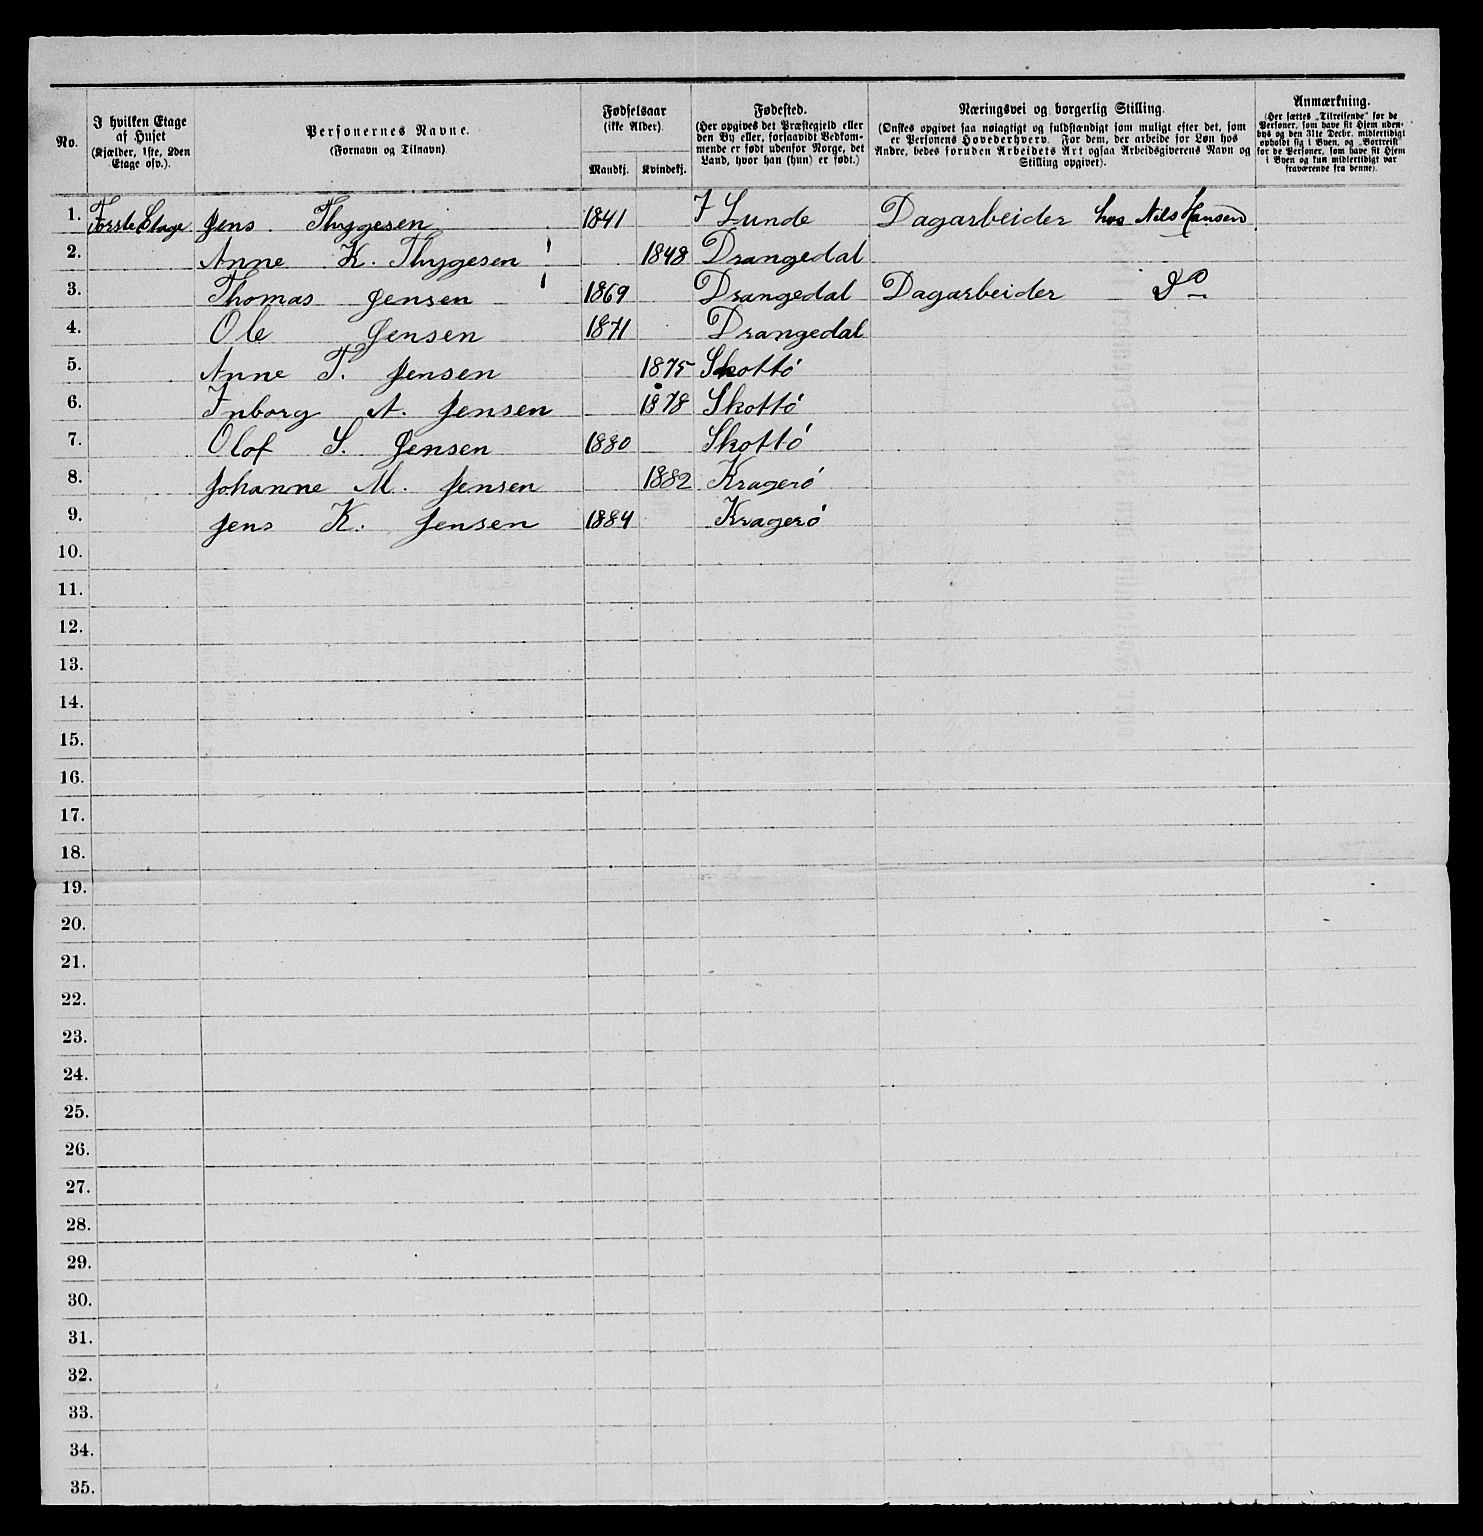 No.
I hvilken Etage
af Huset
(Kjælder, 1ste, 2den
Etage osv.)
Personernes Navne.
(Fornavn og Tilnavn)
Fødselsaar
(ikke Alder).
Mandkj. Kvindekj.
Fødested.
(Her opgives det Præstegjeld eller
den By eller, forsaavidt Vedkom-
mende er født udenfor Norge, det
Land, hvor han (hun) er født.)
Næringsvei og borgerlig Stilling.
(Ønskes opgivet saa nøiagtigt og fuldstændigt som muligt efter det, som
er Personens Hovederhverv. For dem, der arbeide for Løn hos
Andre, bedes foruden Arbeidets Art ogsaa Arbeidsgiverens Navn og
Stilling opgivet).
Anmærkning.
(Her sættes „Tilreisende“ for de
Personer, som have sit Hjem uden-
bys og den 31te Decbr. midlertidigt
opholdt sig i Byen, og „Bortreist“
for de Personer, som have sit Hjem
i Byen og kun midlertidigt var
fraværende fra denne).
1. Forste Etage Jens Thygesen 1841 I Lunde Dagarbeider hos Nils Hansen
2. Anne K. Thygesen 1848 Drangedal
3. Thomas Jensen 1869 Drangedal Dagarbeider Do
4. Ole Jensen 1871 Drangedal
5. Anne T. Jensen 1875 Skottö
6. Inborg A. Jensen 1878 Skottö
7. Olof S. Jensen 1880 Skottö
8. Johanne M. Jensen 1882 Kragerö
9. Jens K. Jensen 1884 Kragerö
10.
11.
12.
13.
14.
15.
16.
17.
18.
19.
20.
21.
22.
23.
24.
25.
26.
27.
28.
29.
30.
31.
32.
33.
34.
35.